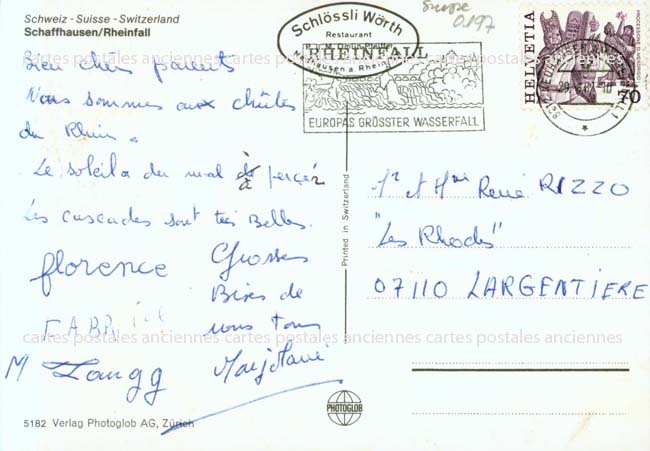 Schweiz - Suisse - Switzerland
Schaffhausen/Rheinfall
Bien chers parents
Nous sommes aux chûtes
du Rhin.
Le soleil a du mal à percer
Les cascades sont très Belles.
florence
FABRiel
M Zaugg
Grosses
Bises de
nous tous
5182 Verlag Photoglob AG, Zürich
Schlössli Wörth
Restaurant
RHEINFALL
EUROPAS GRÖSSTER WASSERFALL
Suisse
0.197
HELVETIA
70
Printed in Switzerland
Mr et Mme René RIZZO
"Les Rhodes"
07110 LARGENTIERE
PHOTOGLOB
cartes postales anciennes cartes postales anciennes cartes postales anciennes
cartes postales anciennes cartes postales anciennes cartes postales anciennes